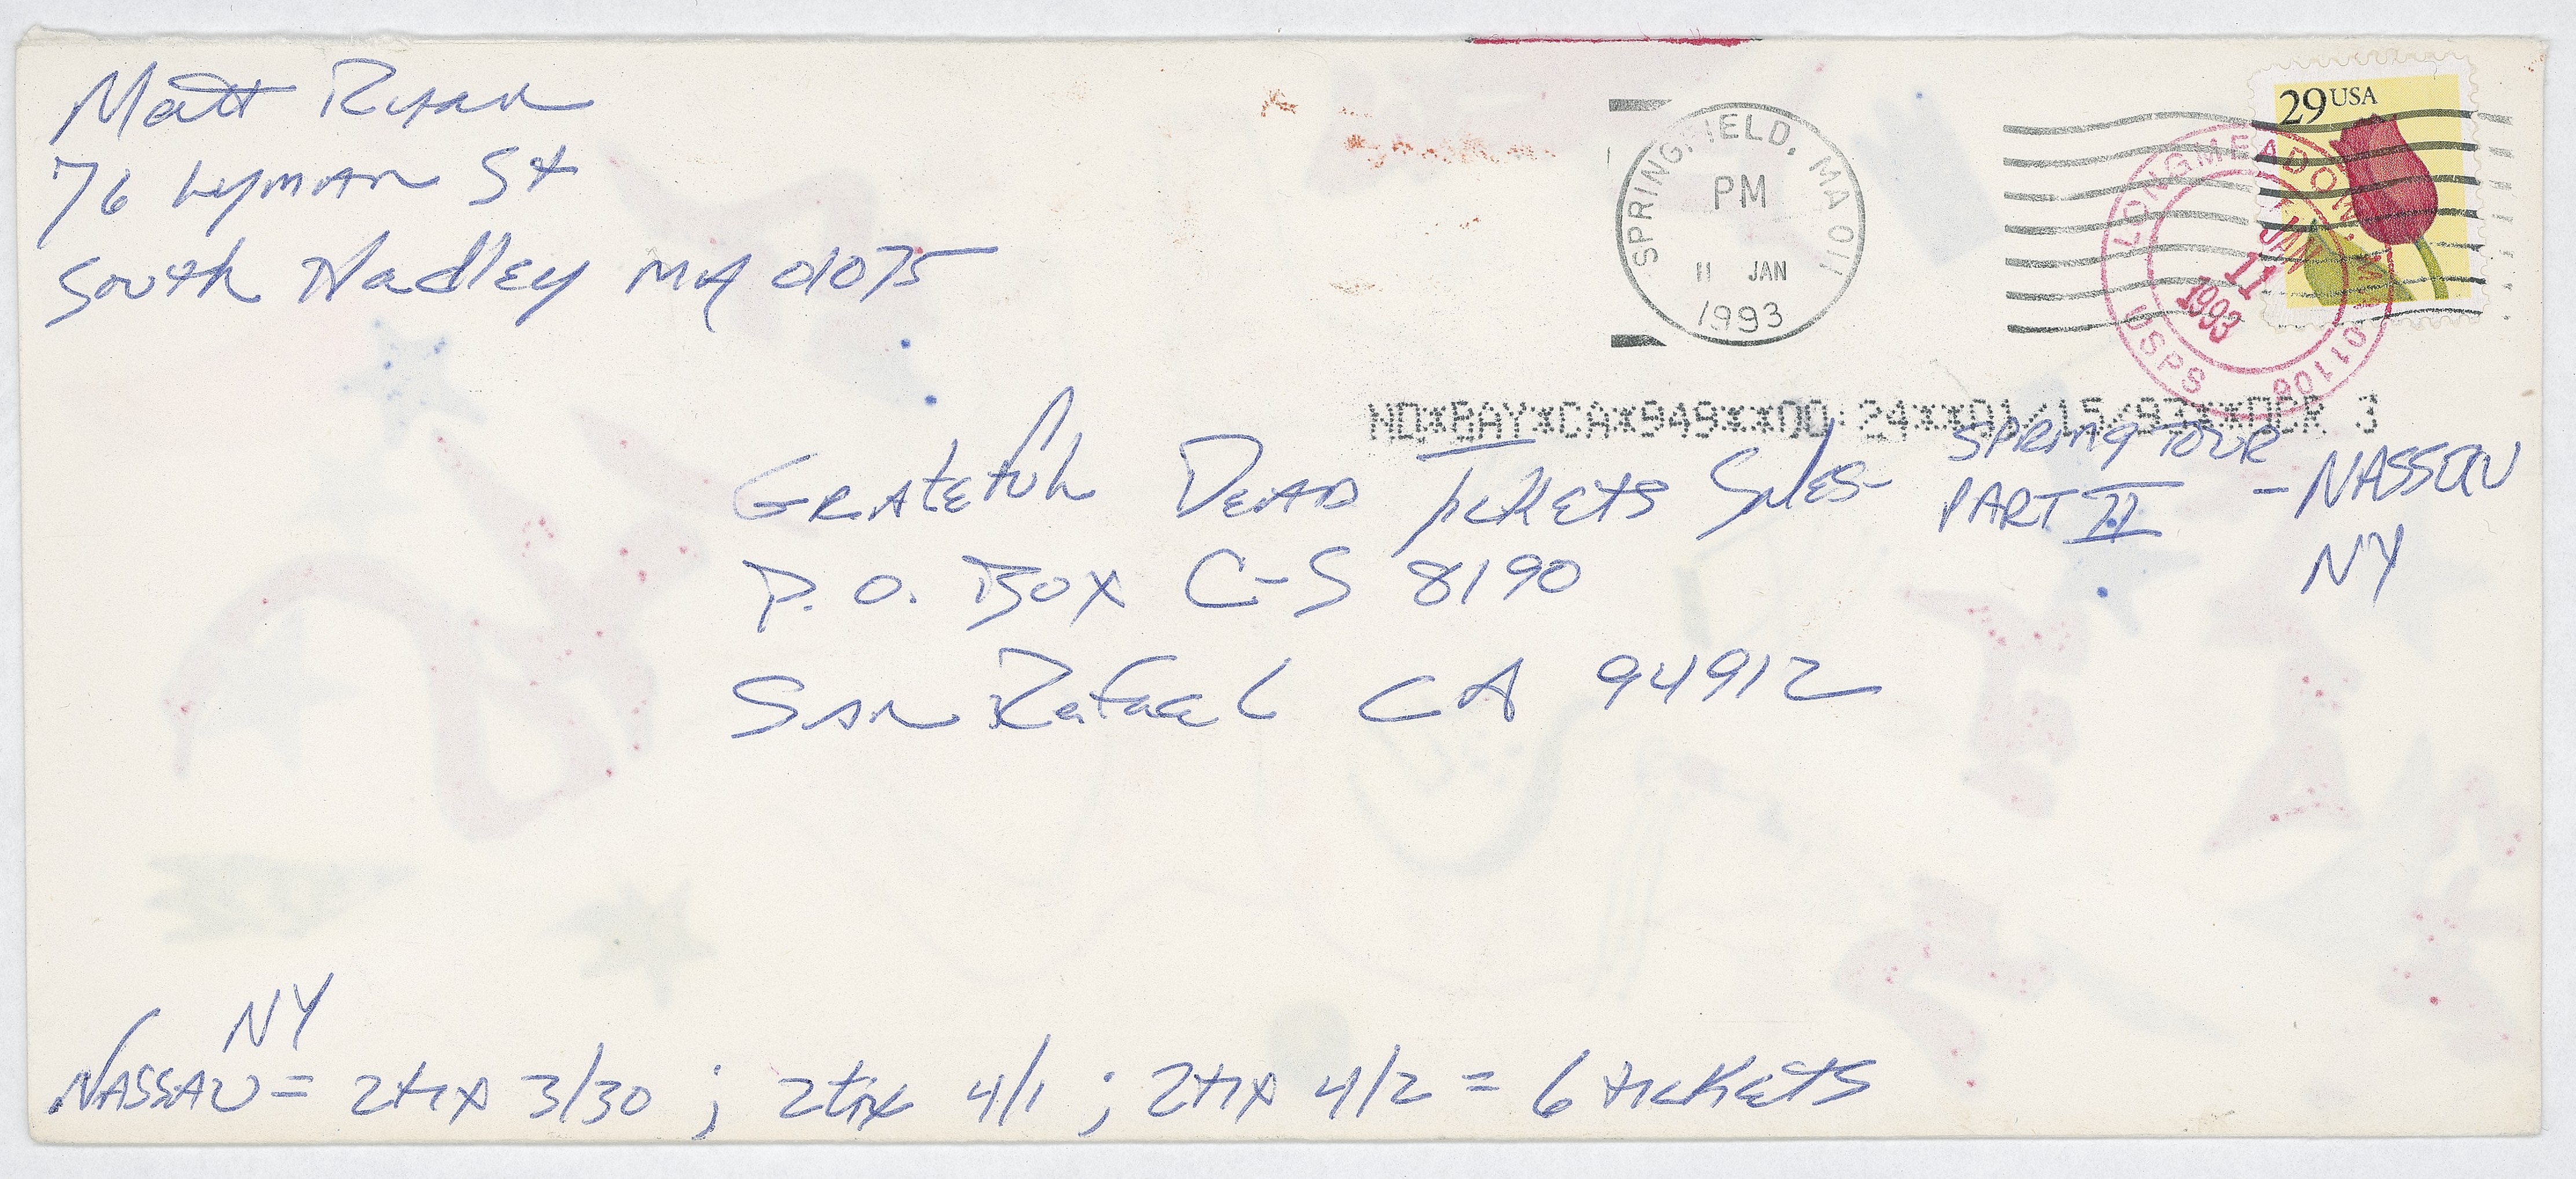 Matt Ryan
76 Lyman St
South Hadley MA 01075
SPRINGFIELD, MA 011
PM
11 JAN
1993
29 USA
LONGMEADOW, MA 01106
JAN
11
1993
USPS
NO*BAY*CA*949**DD 24**01/15/93**OCR 3
Grateful Dead Tickets Sales- Spring Tour
Part II - Nassau
NY
P.O. Box C-S 8190
San Rafael CA 94912
NY
Nassau = 2tix 3/30 ; 2tix 4/1 ; 2tix 4/2 = 6 tickets